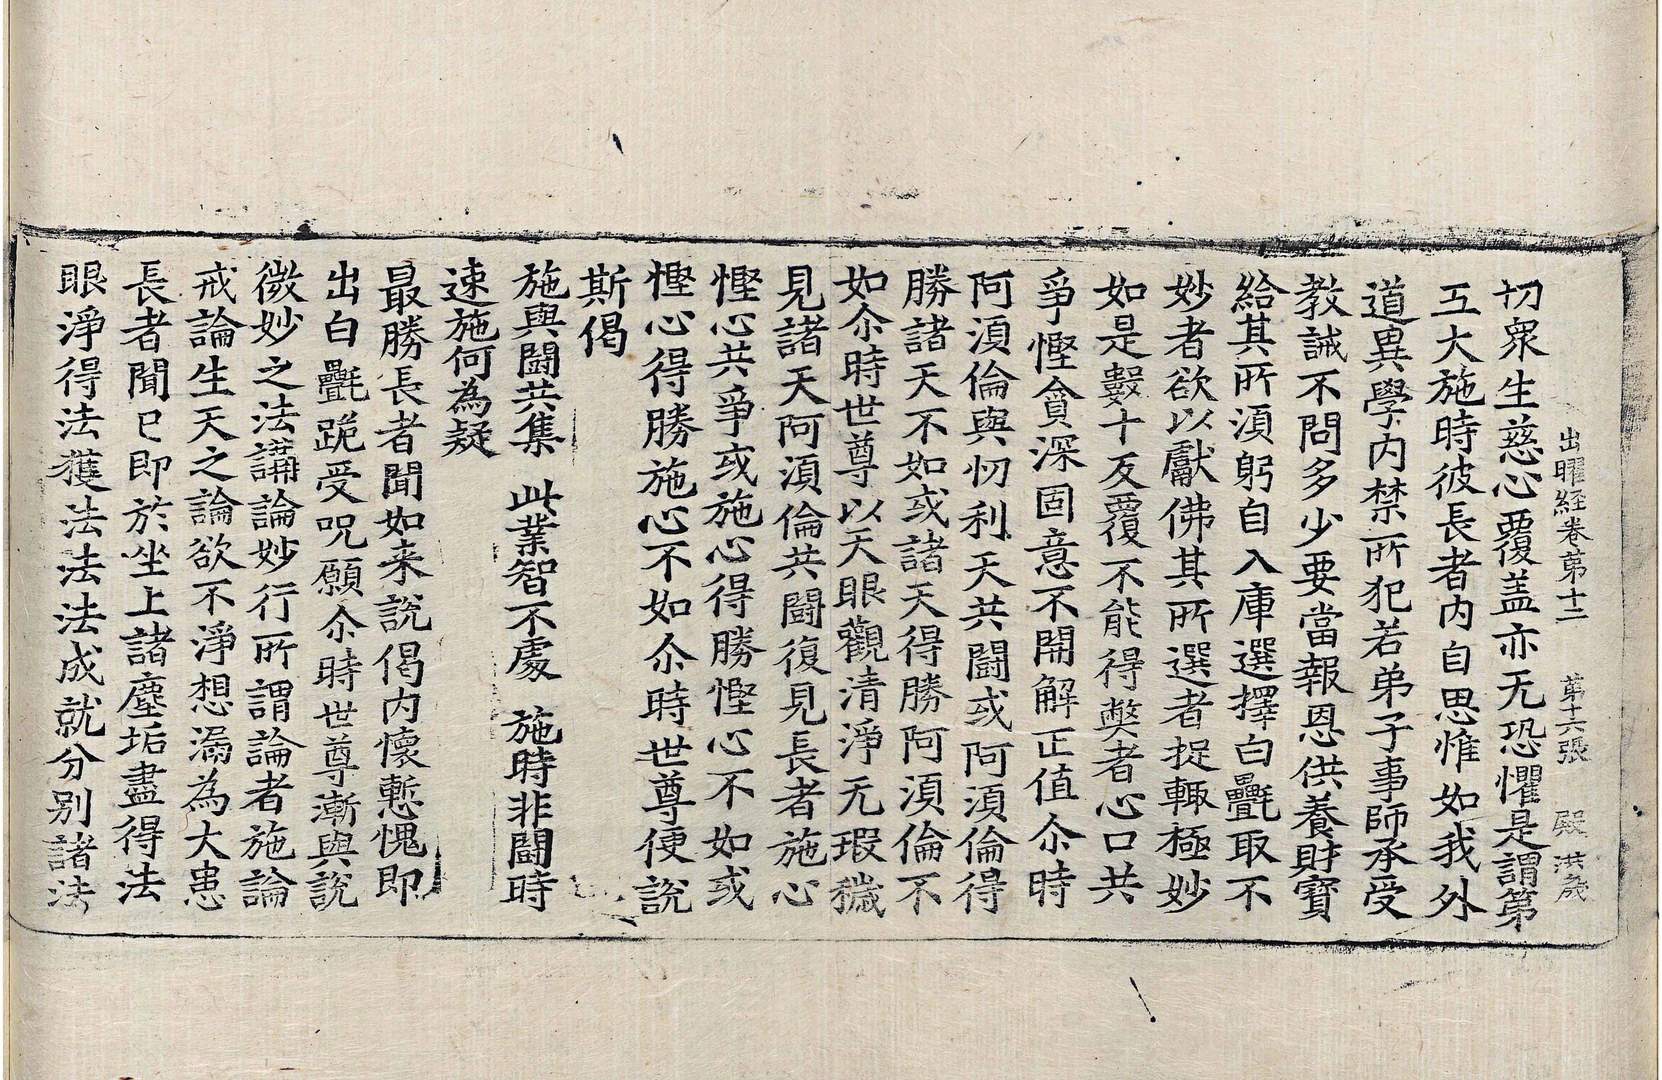 出曜経巻第十二　第十六張　殿　洪歳
切衆生慈心覆盖亦无恐懼是謂第
五大施時彼長者内自思惟如我外
道異學内禁所犯若弟子事師承受
教誡不問多少要當報恩供養財寳
給其所湏躬自入庫選擇白㲲取不
妙者欲以獻佛其所選者捉輙極妙
如是數十反覆不能得弊者心口共
爭慳貪深固意不開解正值尒時
阿湏倫與忉利天共鬪或阿湏倫得
勝諸天不如或諸天得勝阿湏倫不
如尒時世尊以天眼觀清淨无瑕穢
見諸天阿湏倫共鬪復見長者施心
慳心共爭或施心得勝慳心不如或
慳心得勝施心不如尒時世尊便說
斯偈
施與鬪共集　此業智不處　施時非鬪時
速施何為疑
最勝長者聞如来說偈内懷慙愧即
出白㲲跪受呪願尒時世尊漸與說
微妙之法講論妙行所謂論者施論
戒論生天之論欲不淨想漏為大患
長者聞已即於坐上諸塵垢盡得法
眼淨得法獲法法法成就分別諸法